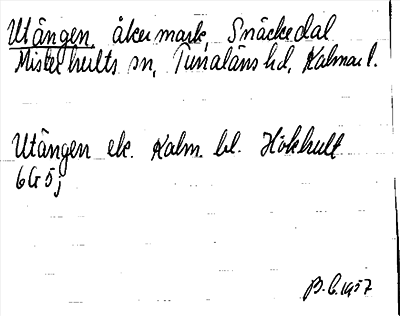 Utängen, åkermark, Snäckedal
Misterhults sn, Tunaläns hd, Kalmar l.
Utängen ek. Kalm. bl. Hökhult
6G5j
B.C. 1957